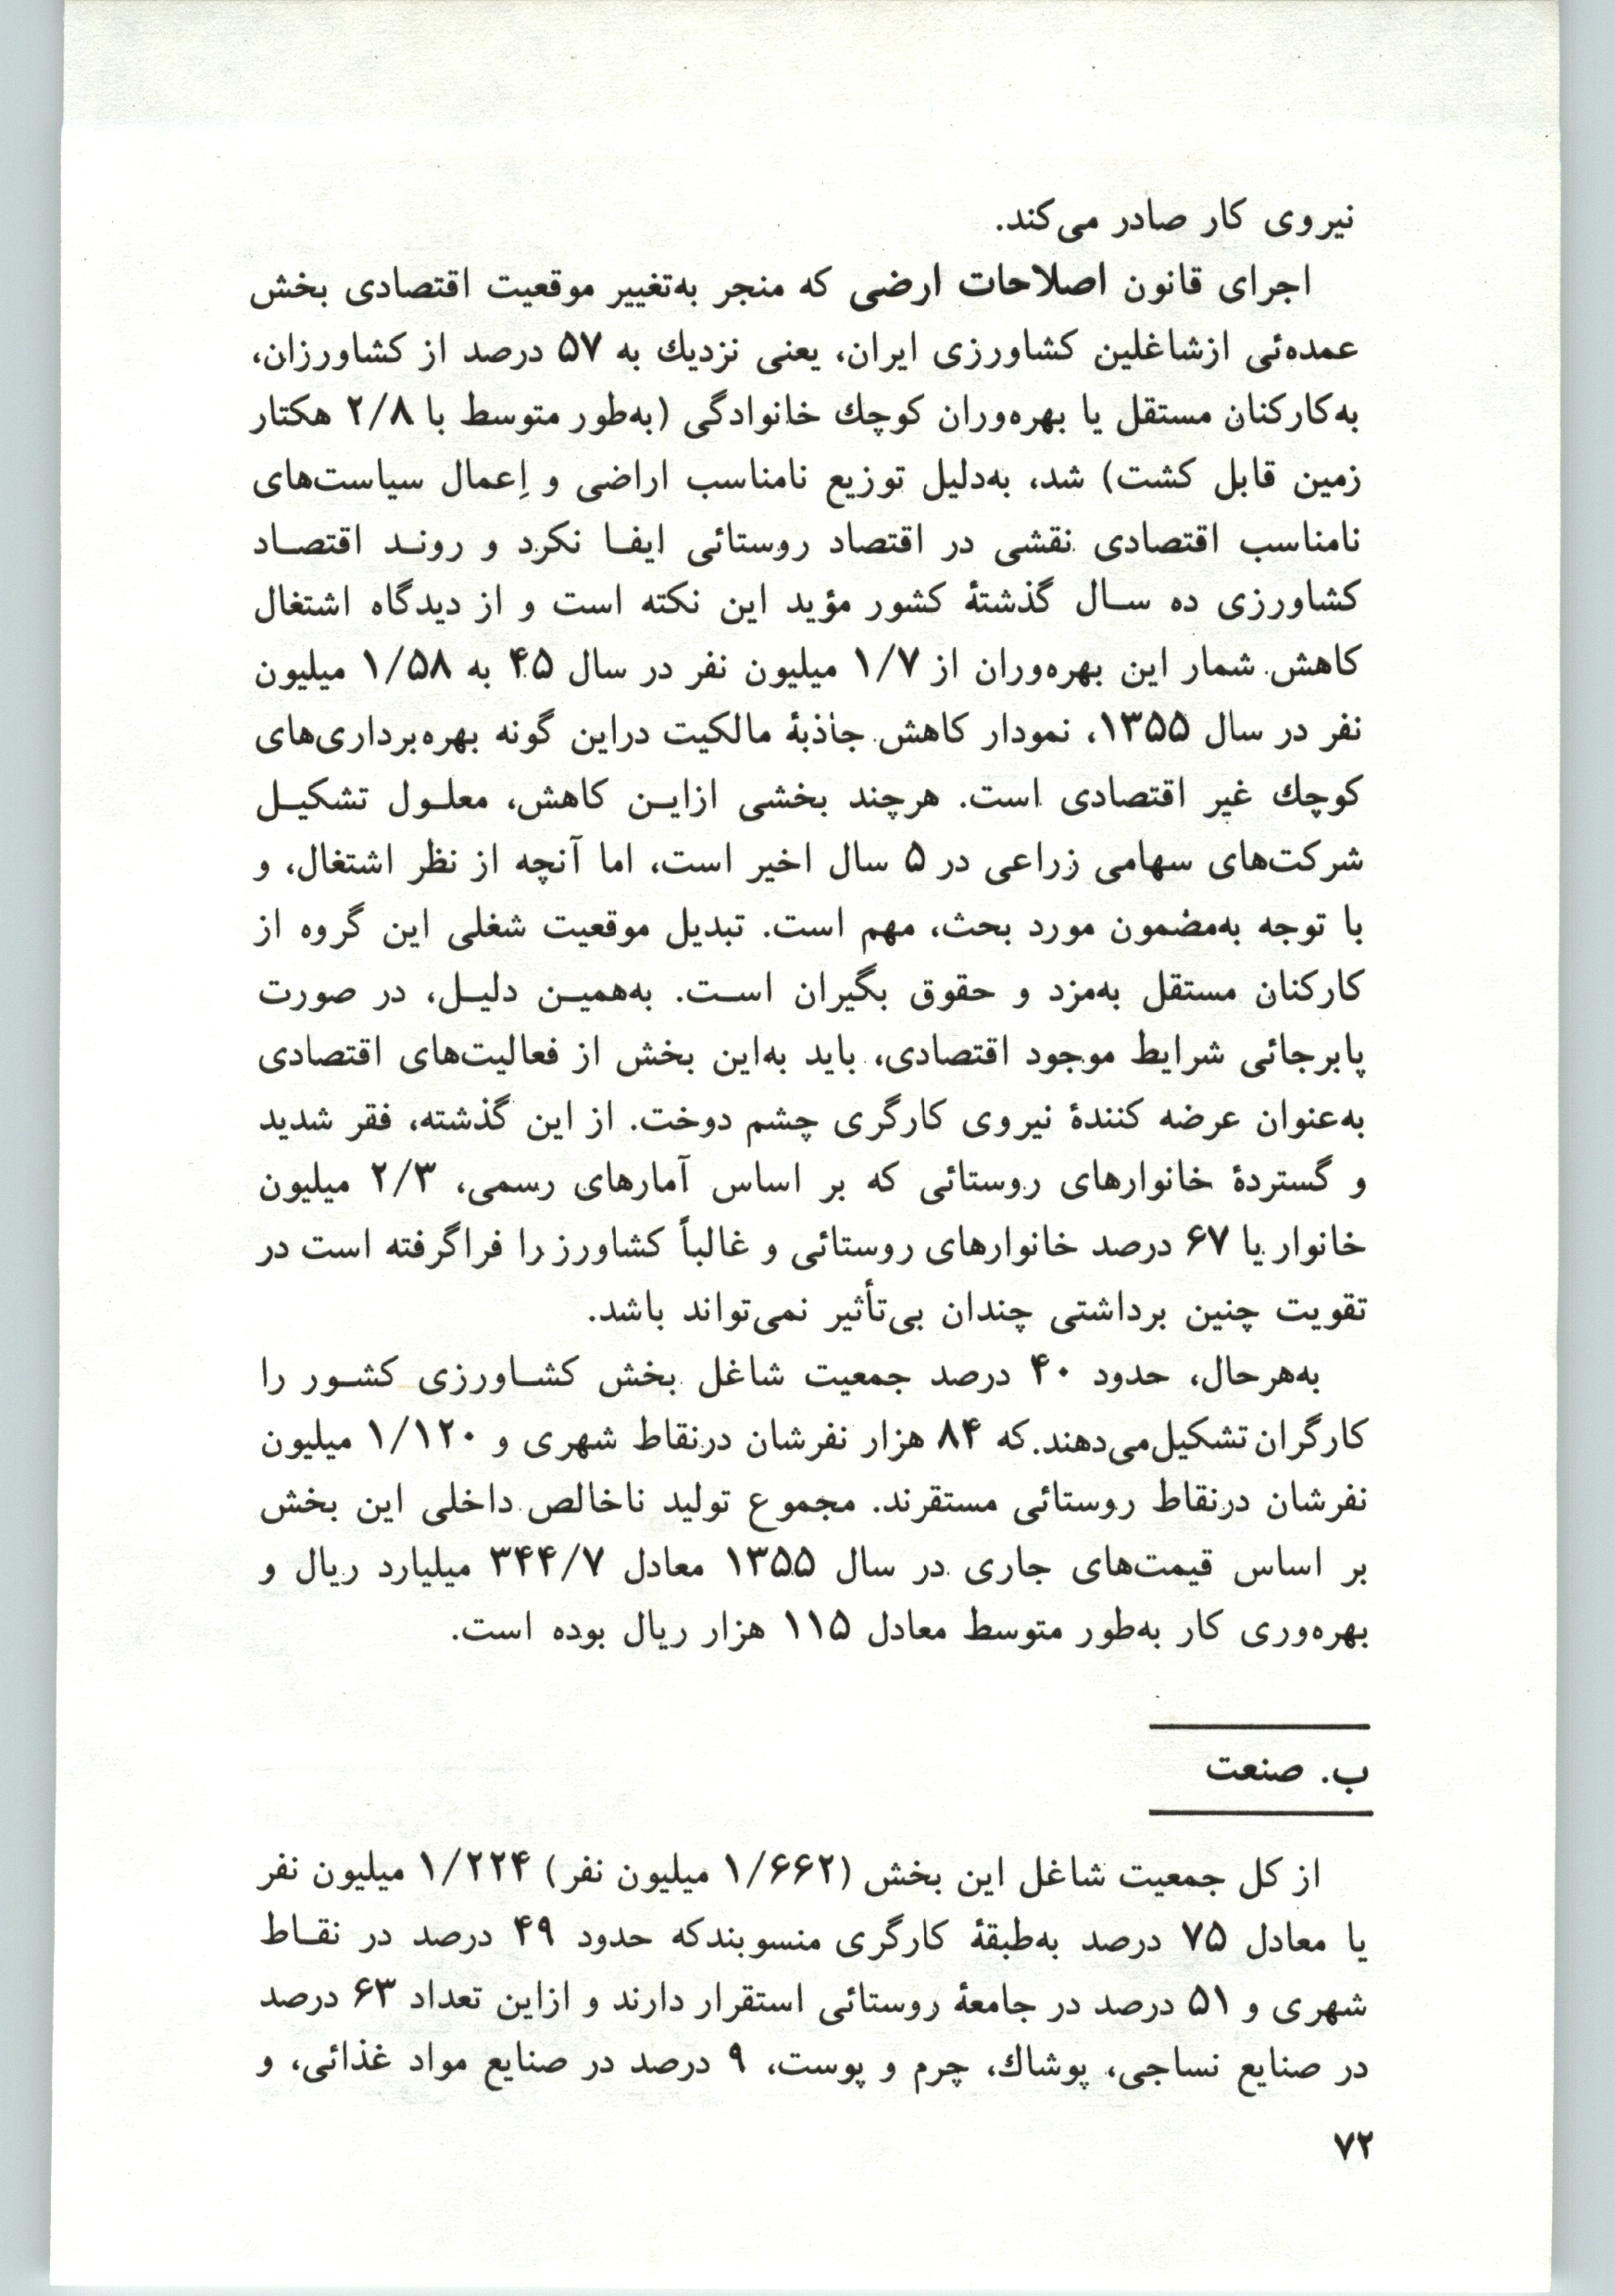 نیروی کار صادر می‌کند.
اجرای قانون اصلاحات ارضی که منجر به‌تغییر موقعیت اقتصادی بخش
عمده‌ئی ازشاغلین کشاورزی ایران، یعنی نزدیك به ۵۷ درصد از کشاورزان،
به‌کارکنان مستقل یا بهره‌وران کوچك خانوادگی (به‌طور متوسط با ۲/۸ هکتار
زمین قابل کشت) شد، به‌دلیل توزیع نامناسب اراضی و اِعمال سیاست‌های
نامناسب اقتصادی نقشی در اقتصاد روستائی ایفـا نکرد و رونـد اقتصـاد
کشاورزی ده سـال گذشتهٔ کشور مؤید این نکته است و از دیدگاه اشتغال
کاهش شمار این بهره‌وران از ۱/۷ میلیون نفر در سال ۴۵ به ۱/۵۸ میلیون
نفر در سال ۱۳۵۵، نمودار کاهش جاذبهٔ مالکیت دراین گونه بهره‌برداری‌های
کوچك غیر اقتصادی است. هرچند بخشی ازایـن کاهش، معلـول تشکیـل
شرکت‌های سهامی زراعی در ۵ سال اخیر است، اما آنچه از نظر اشتغال، و
با توجه به‌مضمون مورد بحث، مهم است. تبدیل موقعیت شغلی این گروه از
کارکنان مستقل به‌مزد و حقوق بگیران اسـت. به‌همیـن دلیـل، در صورت
پابرجائی شرایط موجود اقتصادی، باید به‌این بخش از فعالیت‌های اقتصادی
به‌عنوان عرضه کنندهٔ نیروی کارگری چشم دوخت. از این گذشته، فقر شدید
و گستردهٔ خانوارهای روستائی که بر اساس آمارهای رسمی، ۲/۳ میلیون
خانوار یا ۶۷ درصد خانوارهای روستائی و غالباً کشاورز را فراگرفته است در
تقویت چنین برداشتی چندان بی‌تأثیر نمی‌تواند باشد.
به‌هرحال، حدود ۴۰ درصد جمعیت شاغل بخش کشـاورزی کشـور را
کارگران تشکیل‌می‌دهند.که ۸۴ هزار نفرشان درنقاط شهری و ۱/۱۲۰ میلیون
نفرشان درنقاط روستائی مستقرند. مجموع تولید ناخالص داخلی این بخش
بر اساس قیمت‌های جاری در سال ۱۳۵۵ معادل ۳۴۴/۷ میلیارد ریال و
بهره‌وری کار به‌طور متوسط معادل ۱۱۵ هزار ریال بوده است.
ب. صنعت
از کل جمعیت شاغل این بخش (۱/۶۶۲ میلیون نفر) ۱/۲۲۴ میلیون نفر
یا معادل ۷۵ درصد به‌طبقهٔ کارگری منسوبندکه حدود ۴۹ درصد در نقـاط
شهری و ۵۱ درصد در جامعهٔ روستائی استقرار دارند و ازاین تعداد ۶۳ درصد
در صنایع نساجی، پوشاك، چرم و پوست، ۹ درصد در صنایع مواد غذائی، و
۷۲